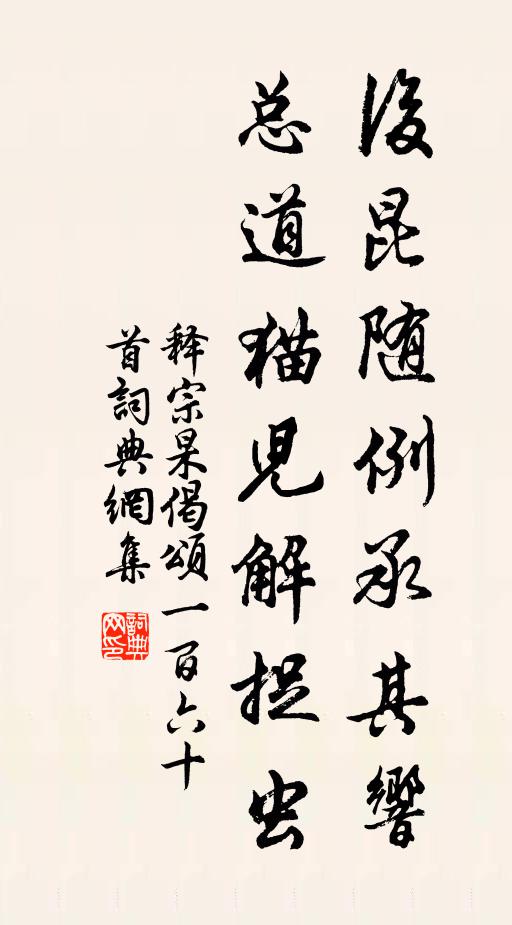 後昆随例承其響
总道猫児解捉虫
释宗杲偈頌一百六十
首詞典網集
詞典网印